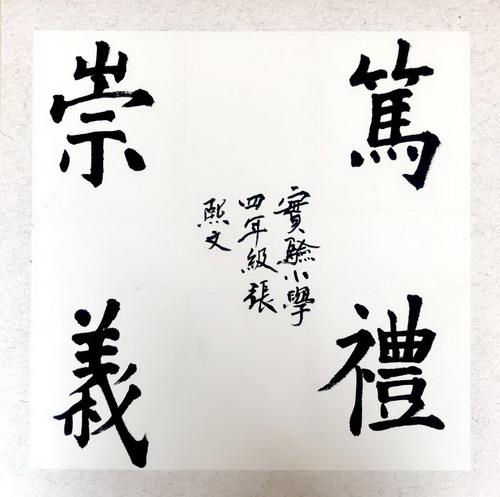 篤禮
崇義
實驗小學
四年級張
熙文